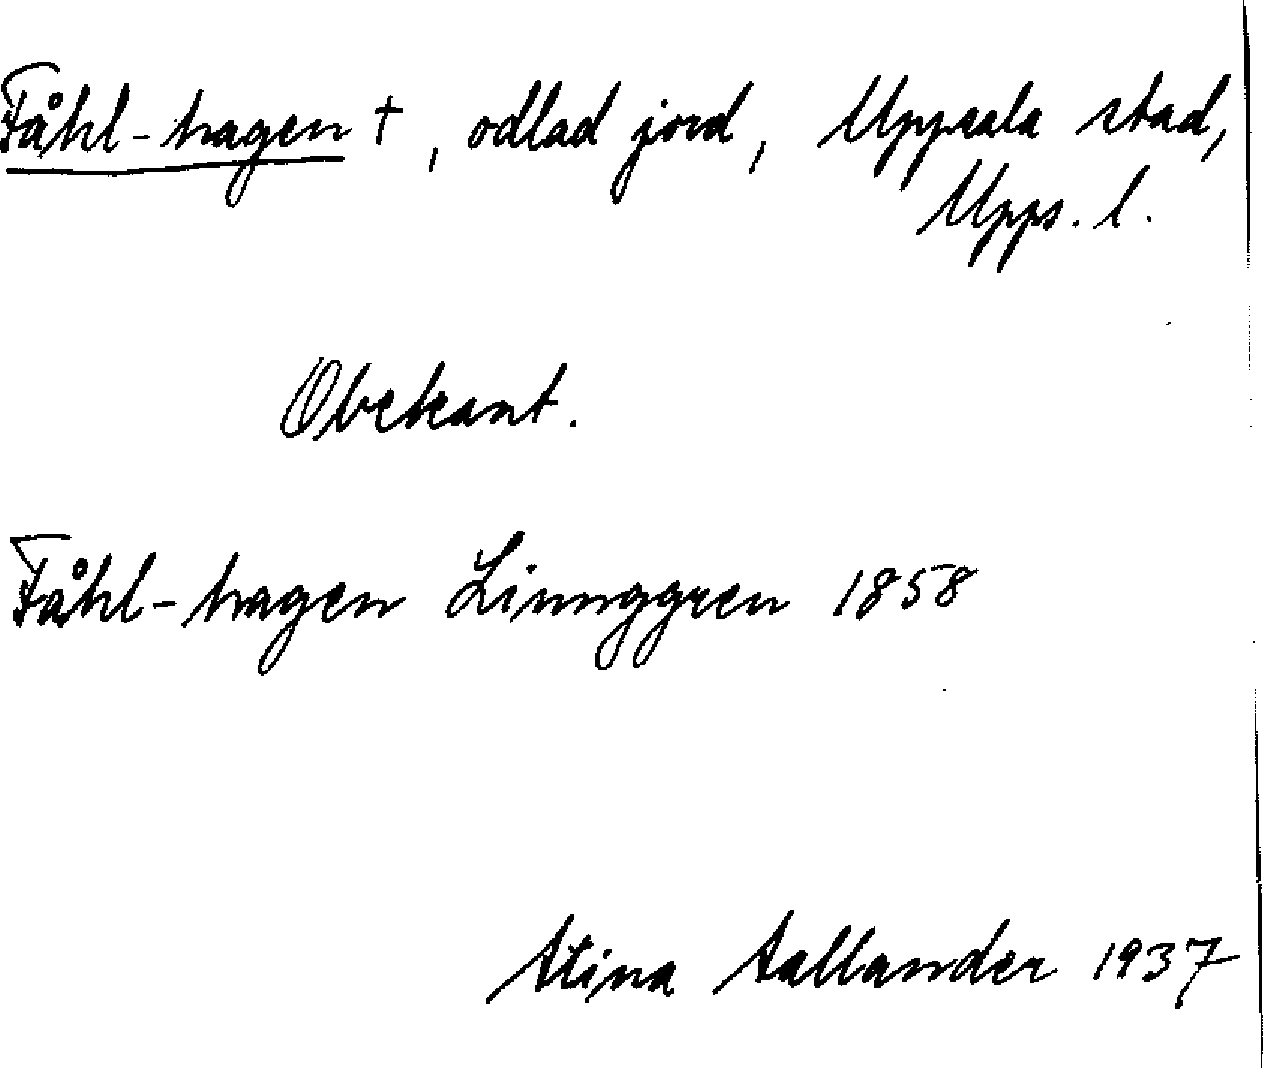 Fåhl-hagen †, odlad jord, Uppsala stad,
Upps. l.
Obekant.
Fåhl-hagen Linnggren 1858
Stina Sallander 1937